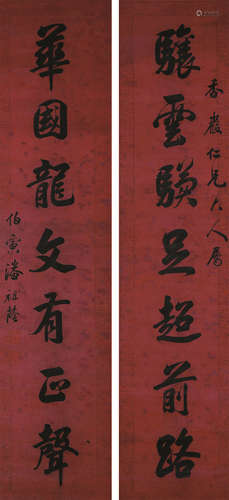 香嚴仁兄大人屬
驤雲驥足超前路
華國龍文有正聲
伯寅潘祖蔭